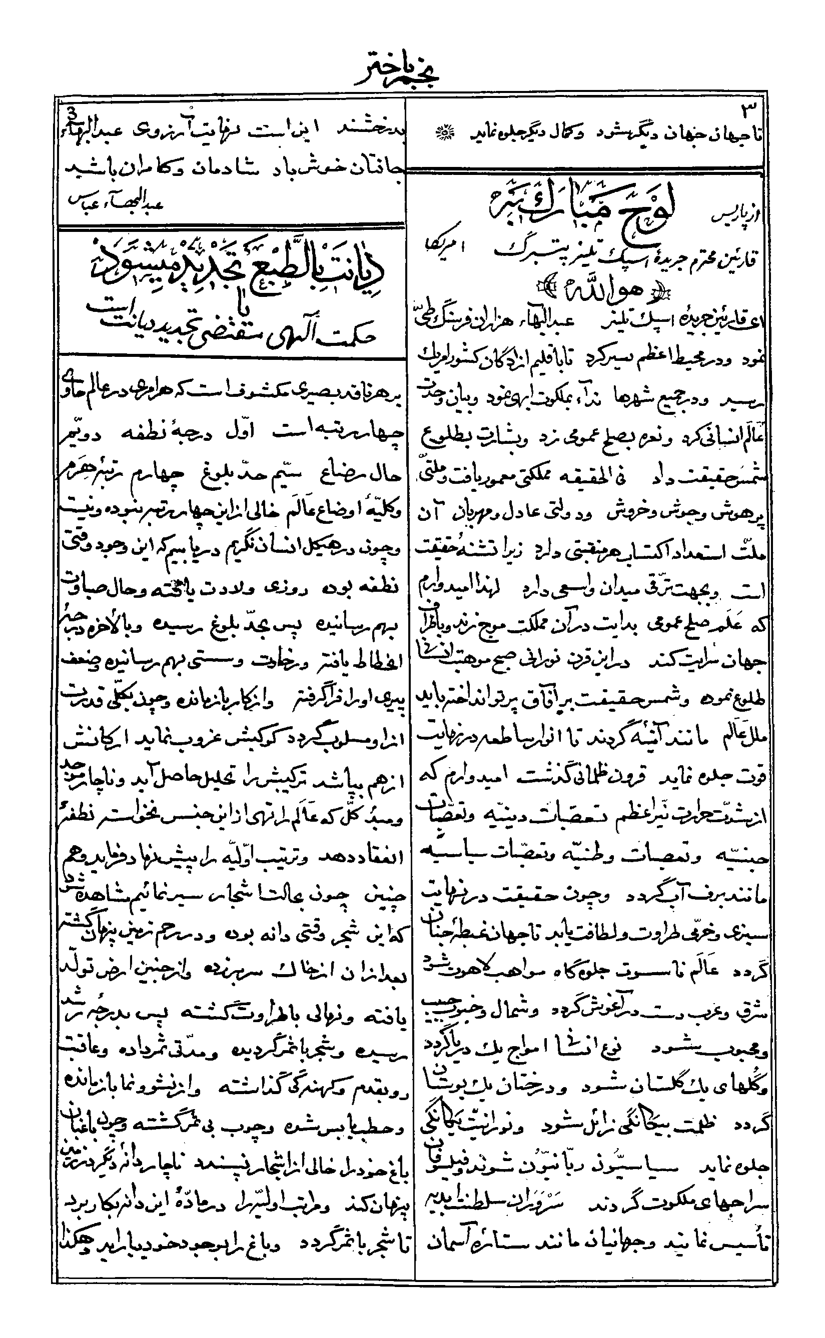 نجم باختر
٣
تا جهان جهان دیگر شود و کمال دیگر جلوه نماید
از پاریس
لوح مبارک به
قارئین محترم جریدهٔ اسپکتیتر پیتسبرگ امریکا
هو الله
ای قارئین جریدهٔ عبدالبهاء هزاران فرسنگ طیّ
نمود و در محیط اعظم سیر کرد تا باقلیم آزادگان کشور امریک
رسید و در جمیع شهرها نداء بملکوت ابهی نمود و بیان وحدت
عالم انسانی کرد و نعره بصلح عمومی زد و بشارت بطلوع
شمس حقیقت داد فی الحقیقه مملکتی معمور یافت و ملّتی
پر هوش و جوش و خروش و دولتی عادل و مهربان آن
ملّت استعداد اکتساب هر منقبتی دارد زیرا تشنهٔ حقیقت
است و بجهت ترقّی میدان واسعی دارد لهذا امیدوارم
که علم صلح عمومی بدایت در آن مملکت موج زند و بآفاق
جهان سرایت کند در این قرن نورانی صبح موهبت انسانی
طلوع نموده و شمس حقیقت بر آفاق پرتو انداخته باید
ملل عالم مانند آئینه گردند تا انوار ساطعه در نهایت
قوت جلوه نماید قرون ظلمانی گذشت امیدوارم که
از شدّت حرارت نیّر اعظم تعصبات دینیّه و تعصّبات
جنسیّه و تعصبات وطنیّه و تعصّبات سیاسیّه
مانند برف آب گردد و چون حقیقت در نهایت
سبزی و خرّمی طراوت و لطافت یابد تا جهان غبطهٔ جنان
گردد عالم ناسوت جلوه گاه مواهب لاهوت شود
شرق و غرب دست در آغوش گردد و شمال و جنوب حبیب
و محبوب شود نوع انسان امواج یک دریا گردد
و گلهای یک گلستان شود و درختان یک بوستان
گردد ظلمت بیگانگی زائل شود و نورانیّت یگانگی
جلوه نماید سیاسیّون ربّانیّون شوند و فیلسوفان
سراجهای ملکوت گردند سروران سلطنت ابدیه
تأسیس نمایند و جهانیان مانند ستارهٔ آسمان
3
بدرخشند این است نهایت آرزوی عبدالبهاء
جانتان خوش باد شادمان و کامران باشید
عبدالبهاء عباس
دیانت بالطّبع تجدید میشود
یا
حکمت آلهی مقتضی تجدید دیانت است
بر هر ناقد بصیری مکشوف است که هر امری در عالم حاوی
چهار رتبه است اوّل درجهٔ نطفه دویّم
حال رضاع سیّم حدّ بلوغ چهارم رتبهٔ هَرَم
و کلیّهٔ اوضاع عالم خالی از این چهار رتبه نبوده و نیست
و چون در هیکل انسان نگریم دریابیم که این وجود وقتی
نطفه بوده روزی ولادت یافته و حال صباوت
بهم رسانیده پس بحدّ بلوغ رسیده و بالاخره درجهٔ
انحطاط یافته و رخاوت و سستی بهم رسانیده و ضعف
پیری او را فراگرفته و از کار بازمانده و چون بکلّی قدرت
از او مسلوب گردد کوکبش غروب نماید ارکانش
از هم بپاشد ترکیبش را تحلیل حاصل آید و ناچار موجد
و مبدء کل که عالم را تهی از این جنس نخواسته نطفهٔ
انعقاد دهد و ترتیب اوّلیّه را پیش نهاد فرماید و هم
چنین چون بحالت اشجار سیر نمائیم مشاهده شود
که این شجر وقتی دانه بوده و در رحم زمین پنهان گشته
بعد از آن از خاک سر بر زده و از جنین ارض تولّد
یافته و نهالی با طراوت گشته پس بدرجهٔ رشد
رسیده و شجر با ثمر گردیده و مدتی ثمر داده و عاقبت
رو بقدم و کهنه گی گذاشته و از نشو و نما بازمانده
و حطب یابس شده و چوب بی ثمر گشته و چون باغبان
باغ خود را خالی از اشجار نپسندد ناچار دانهٔ دیگر در زمین
پنهان کند و مراتب اولیّه را در مادّهٔ این دانه بکار برد
تا شجر با ثمر گردد و باغ را بوجود خود بیاراید و هکذا